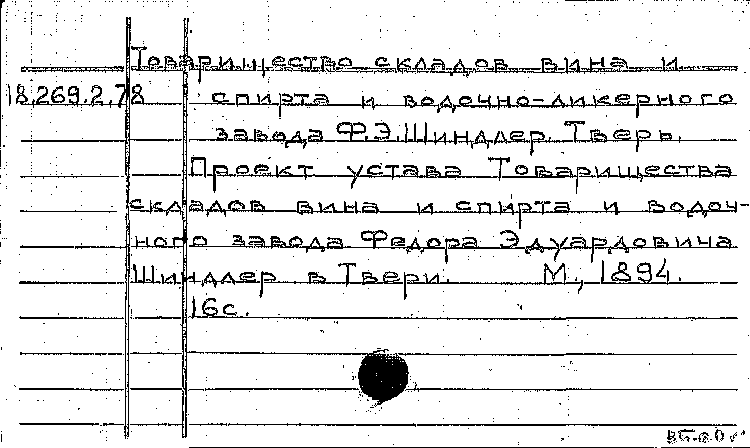 Товарищество складов вина и
18.269.2.78 спирта и водочно-ликерного
завода Ф.Э.Шиндлер. Тверь.
Проект устава Товарищества
складов вина и спирта и водоч-
ного завода Федора Эдуардовича
Шиндлер в Твери. М., 1894.
16с.